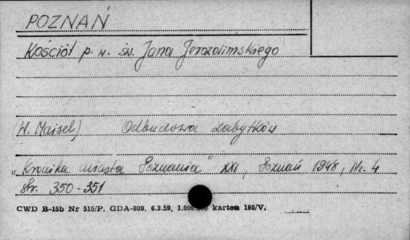 POZNAŃ
Kościół p. w. św. Jana Jerozolimskiego
W. Maisel) Odbudowa zabytków
„Kronika miasta Poznania" XXI, Poznań 1948, Nr. 4
Str. 350-351
CWD B-15b Nr 515/P. GDA-809. 6.3.59, 1.000.000 karton 180/V.